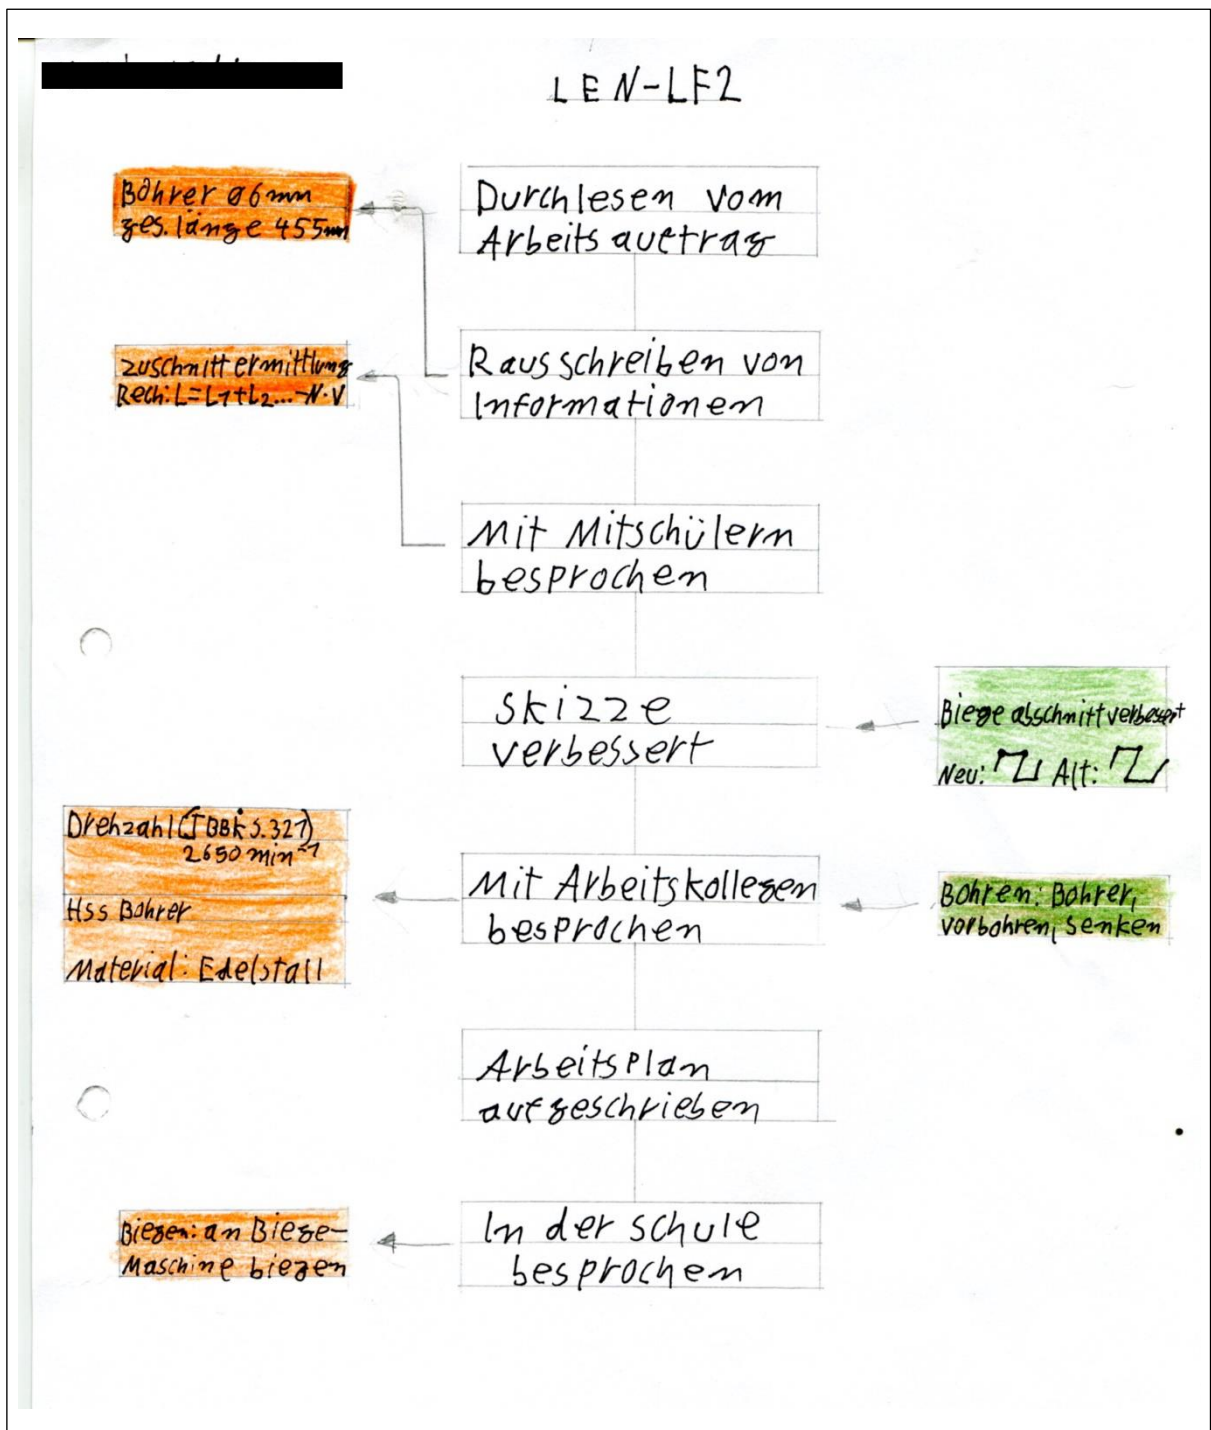 LEN-LF2
Bohrer ø6mm
ges. länge 455mm
Durchlesen vom
Arbeitsauftrag
zuschnittermittlung
Rech: L=L1+L2...-N·V
Rausschreiben von
Informationen
Mit Mitschülern
besprochen
Skizze
verbessert
Biegeabschnitt verbessert
Neu: Alt:
Drehzahl (TBBk S.321)
2650 min⁻¹
Hss Bohrer
Material: Edelstall
Mit Arbeitskollegen
besprochen
Bohren: Bohrer,
vorbohren, senken
Arbeitsplan
aufgeschrieben
Biegen: an Biege-
Maschine biegen
In der schule
besprochen